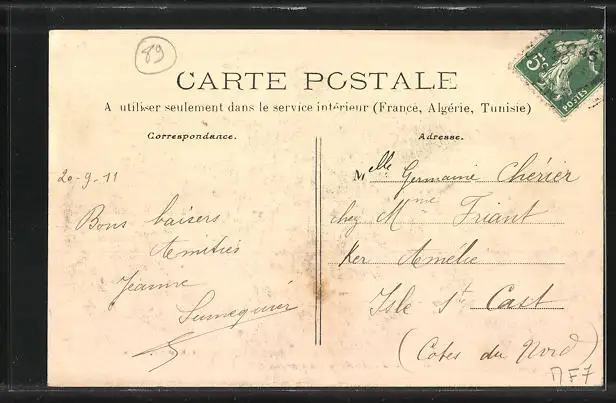 89
CARTE POSTALE
A utiliser seulement dans le service intérieur (France, Algérie, Tunisie)
Correspondance.
20-9-11
Bons baisers
Amitiés
Jeanne
Adresse.
Melle Germaine Chérier
chez Mme Friant
Ker Amélie
Isle St Cast
(Cotes du Nord)
5c
POSTES